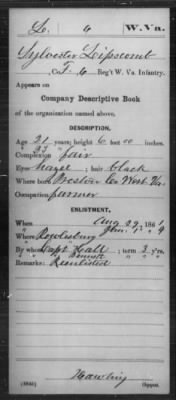 L. 6 W. Va.
Sylvester Lipscomb
Co. F, 6 Reg't W. Va. Infantry.
Appears on
Company Descriptive Book
of the organization named above.
DESCRIPTION.
Age 21 years; height 6 feet 00 inches.
Complexion fair
Eyes hazel; hair black
Where born Preston Co West Va
Occupation farmer
ENLISTMENT.
When Aug 29, 1861
Where Rowlesburg
By whom Capt Hall; term 3 y'rs.
Remarks: Reenlisted